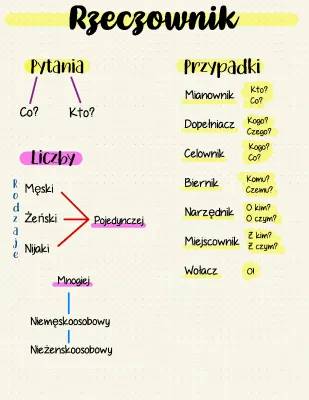 Rzeczownik
Pytania
Co? Kto?
Liczby
Rodzaje
Męski
Żeński
Nijaki
Pojedynczej
Mnogiej
Niemęskoosobowy
Nieżenskoosobowy
Przypadki
Mianownik Kto?
Co?
Dopełniacz Kogo?
Czego?
Celownik Kogo?
Co?
Biernik Komu?
Czemu?
Narzędnik O kim?
O czym?
Miejscownik Z kim?
Z czym?
Wołacz O!